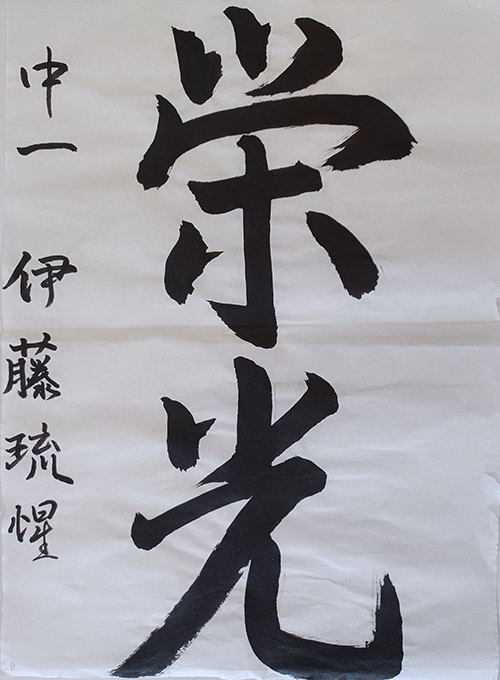 栄光
中一 伊藤琉惺